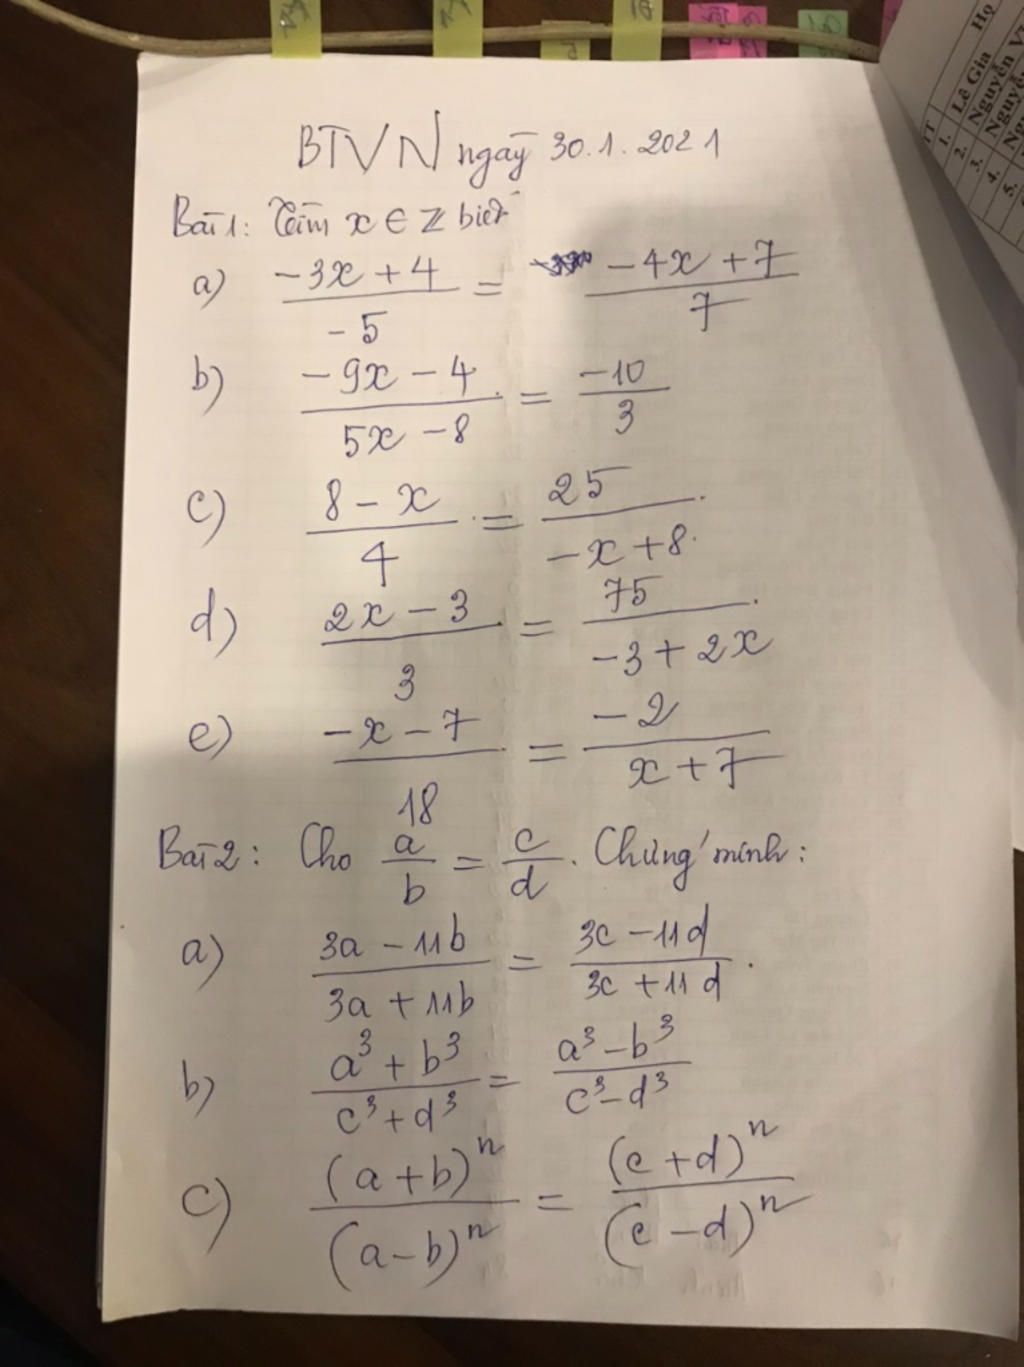 BTVN ngày 30.1.2021
Bài 1: Tìm x ∈ Z biết
a) (-3x + 4)/(-5) = (-4x + 7)/7
b) (-9x - 4)/(5x - 8) = (-10)/3
c) (8 - x)/4 = 25/(-x + 8)
d) (2x - 3)/3 = 75/(-3 + 2x)
e) (-x - 7)/18 = (-2)/(x + 7)
Bài 2: Cho a/b = c/d. Chứng minh:
a) (3a - 11b)/(3a + 11b) = (3c - 11d)/(3c + 11d).
b) (a³ + b³)/(c³ + d³) = (a³ - b³)/(c³ - d³)
c) (a + b)ⁿ/(a - b)ⁿ = (c + d)ⁿ/(c - d)ⁿ
Họ
1. Lê Gia
2. Nguyễn
3. Nguyễn
4.
5.